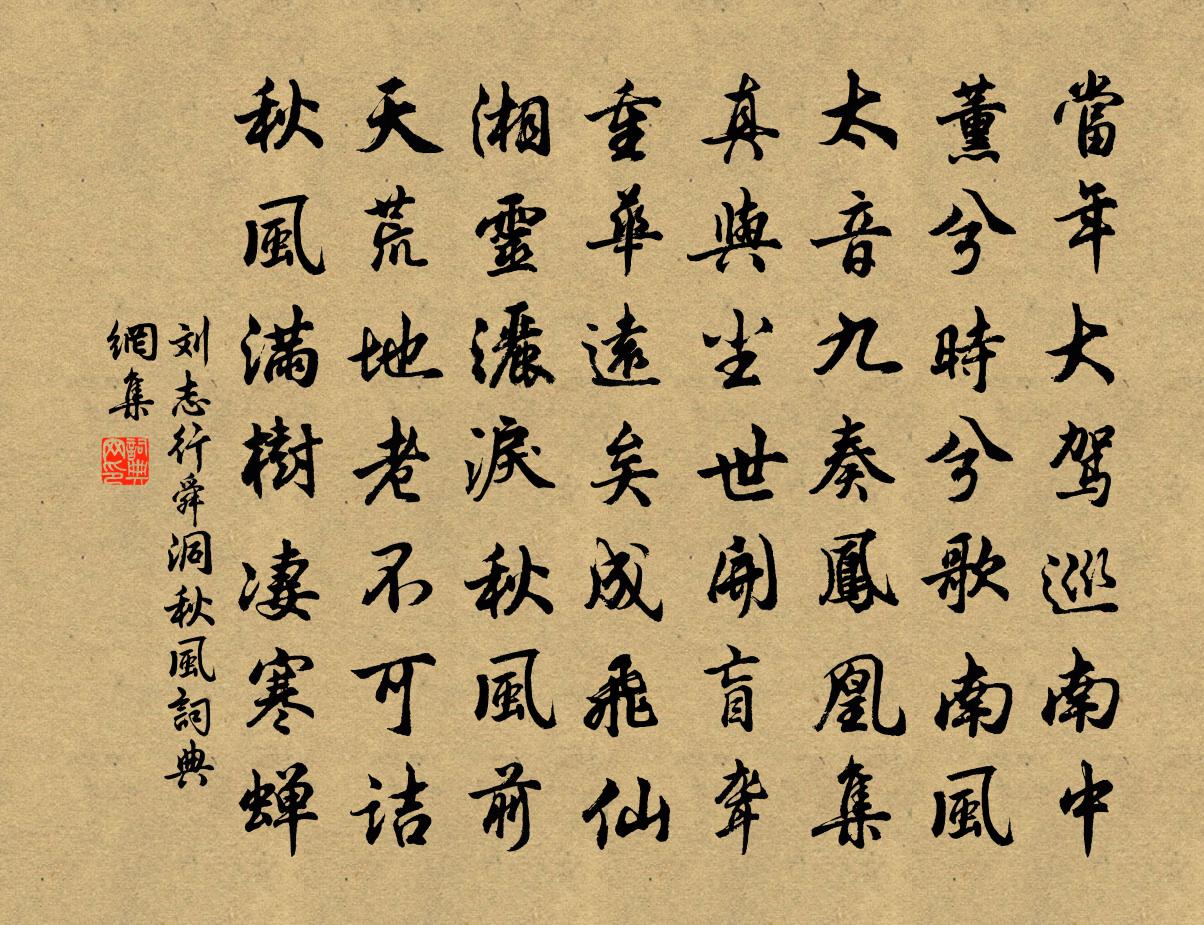 當年大驾巡南中
薰兮時兮歌南風
太音九奏鳳凰集
真與尘世開盲聋
重華遠矣成飛仙
湘靈灑淚秋風前
天荒地老不可诘
秋風滿樹凄寒蝉
刘志行舜洞秋風詞典
網集
詞典
网印